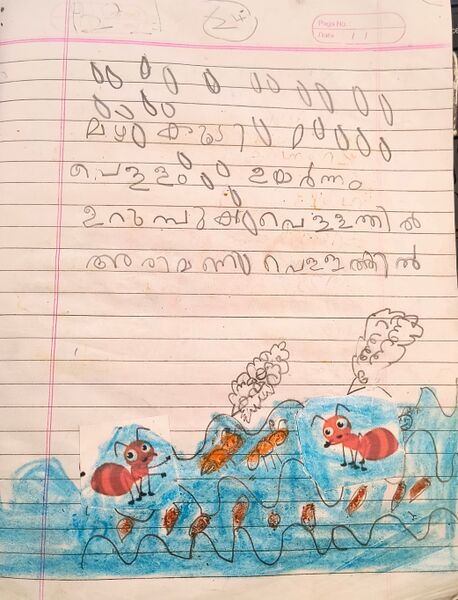 Page No.
Date / /
മഴ കൂടി
വെള്ളം ഉയർന്നു
ഉറുമ്പുകൾ വെള്ളത്തിൽ
അരിമണി വെള്ളത്തിൽ